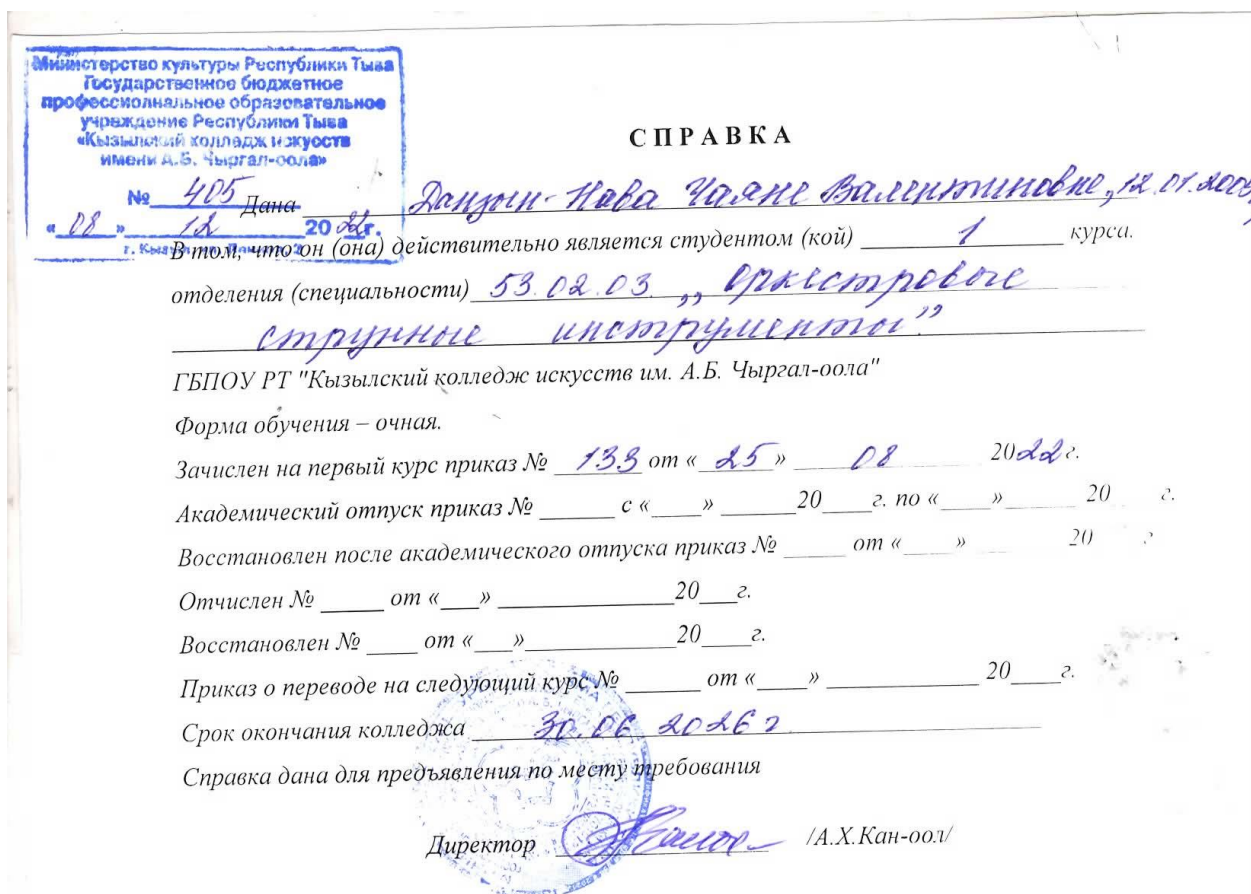 Министерство культуры Республики Тыва
Государственное бюджетное
профессиональное образовательное
учреждение Республики Тыва
«Кызылский колледж искусств
имени А.Б. Чыргал-оола»
№ 405
« 08 » 12 20 22г.
г. Кызыл,
СПРАВКА
Дана Данзын- Чаяне Валентиновне, 12.01.
В том, что он (она) действительно является студентом (кой) 1 курса.
отделения (специальности) 53.02.03. „ оркестровые
струнные инструменты”.
ГБПОУ РТ "Кызылский колледж искусств им. А.Б. Чыргал-оола"
Форма обучения – очная.
Зачислен на первый курс приказ № 133 от « 25 » 08 2022г.
Академический отпуск приказ № ______ с «____» ______20____г. по «____»______ 20____г.
Восстановлен после академического отпуска приказ № _____ от «____» ______ 20____г
Отчислен № _____ от «___» ______________20___г.
Восстановлен № ____ от «___»____________20____г.
Приказ о переводе на следующий курс № ______ от «____» ____________ 20____г.
Срок окончания колледжа 30.06.2026 г
Справка дана для предъявления по месту требования
Директор /А.Х.Кан-оол/